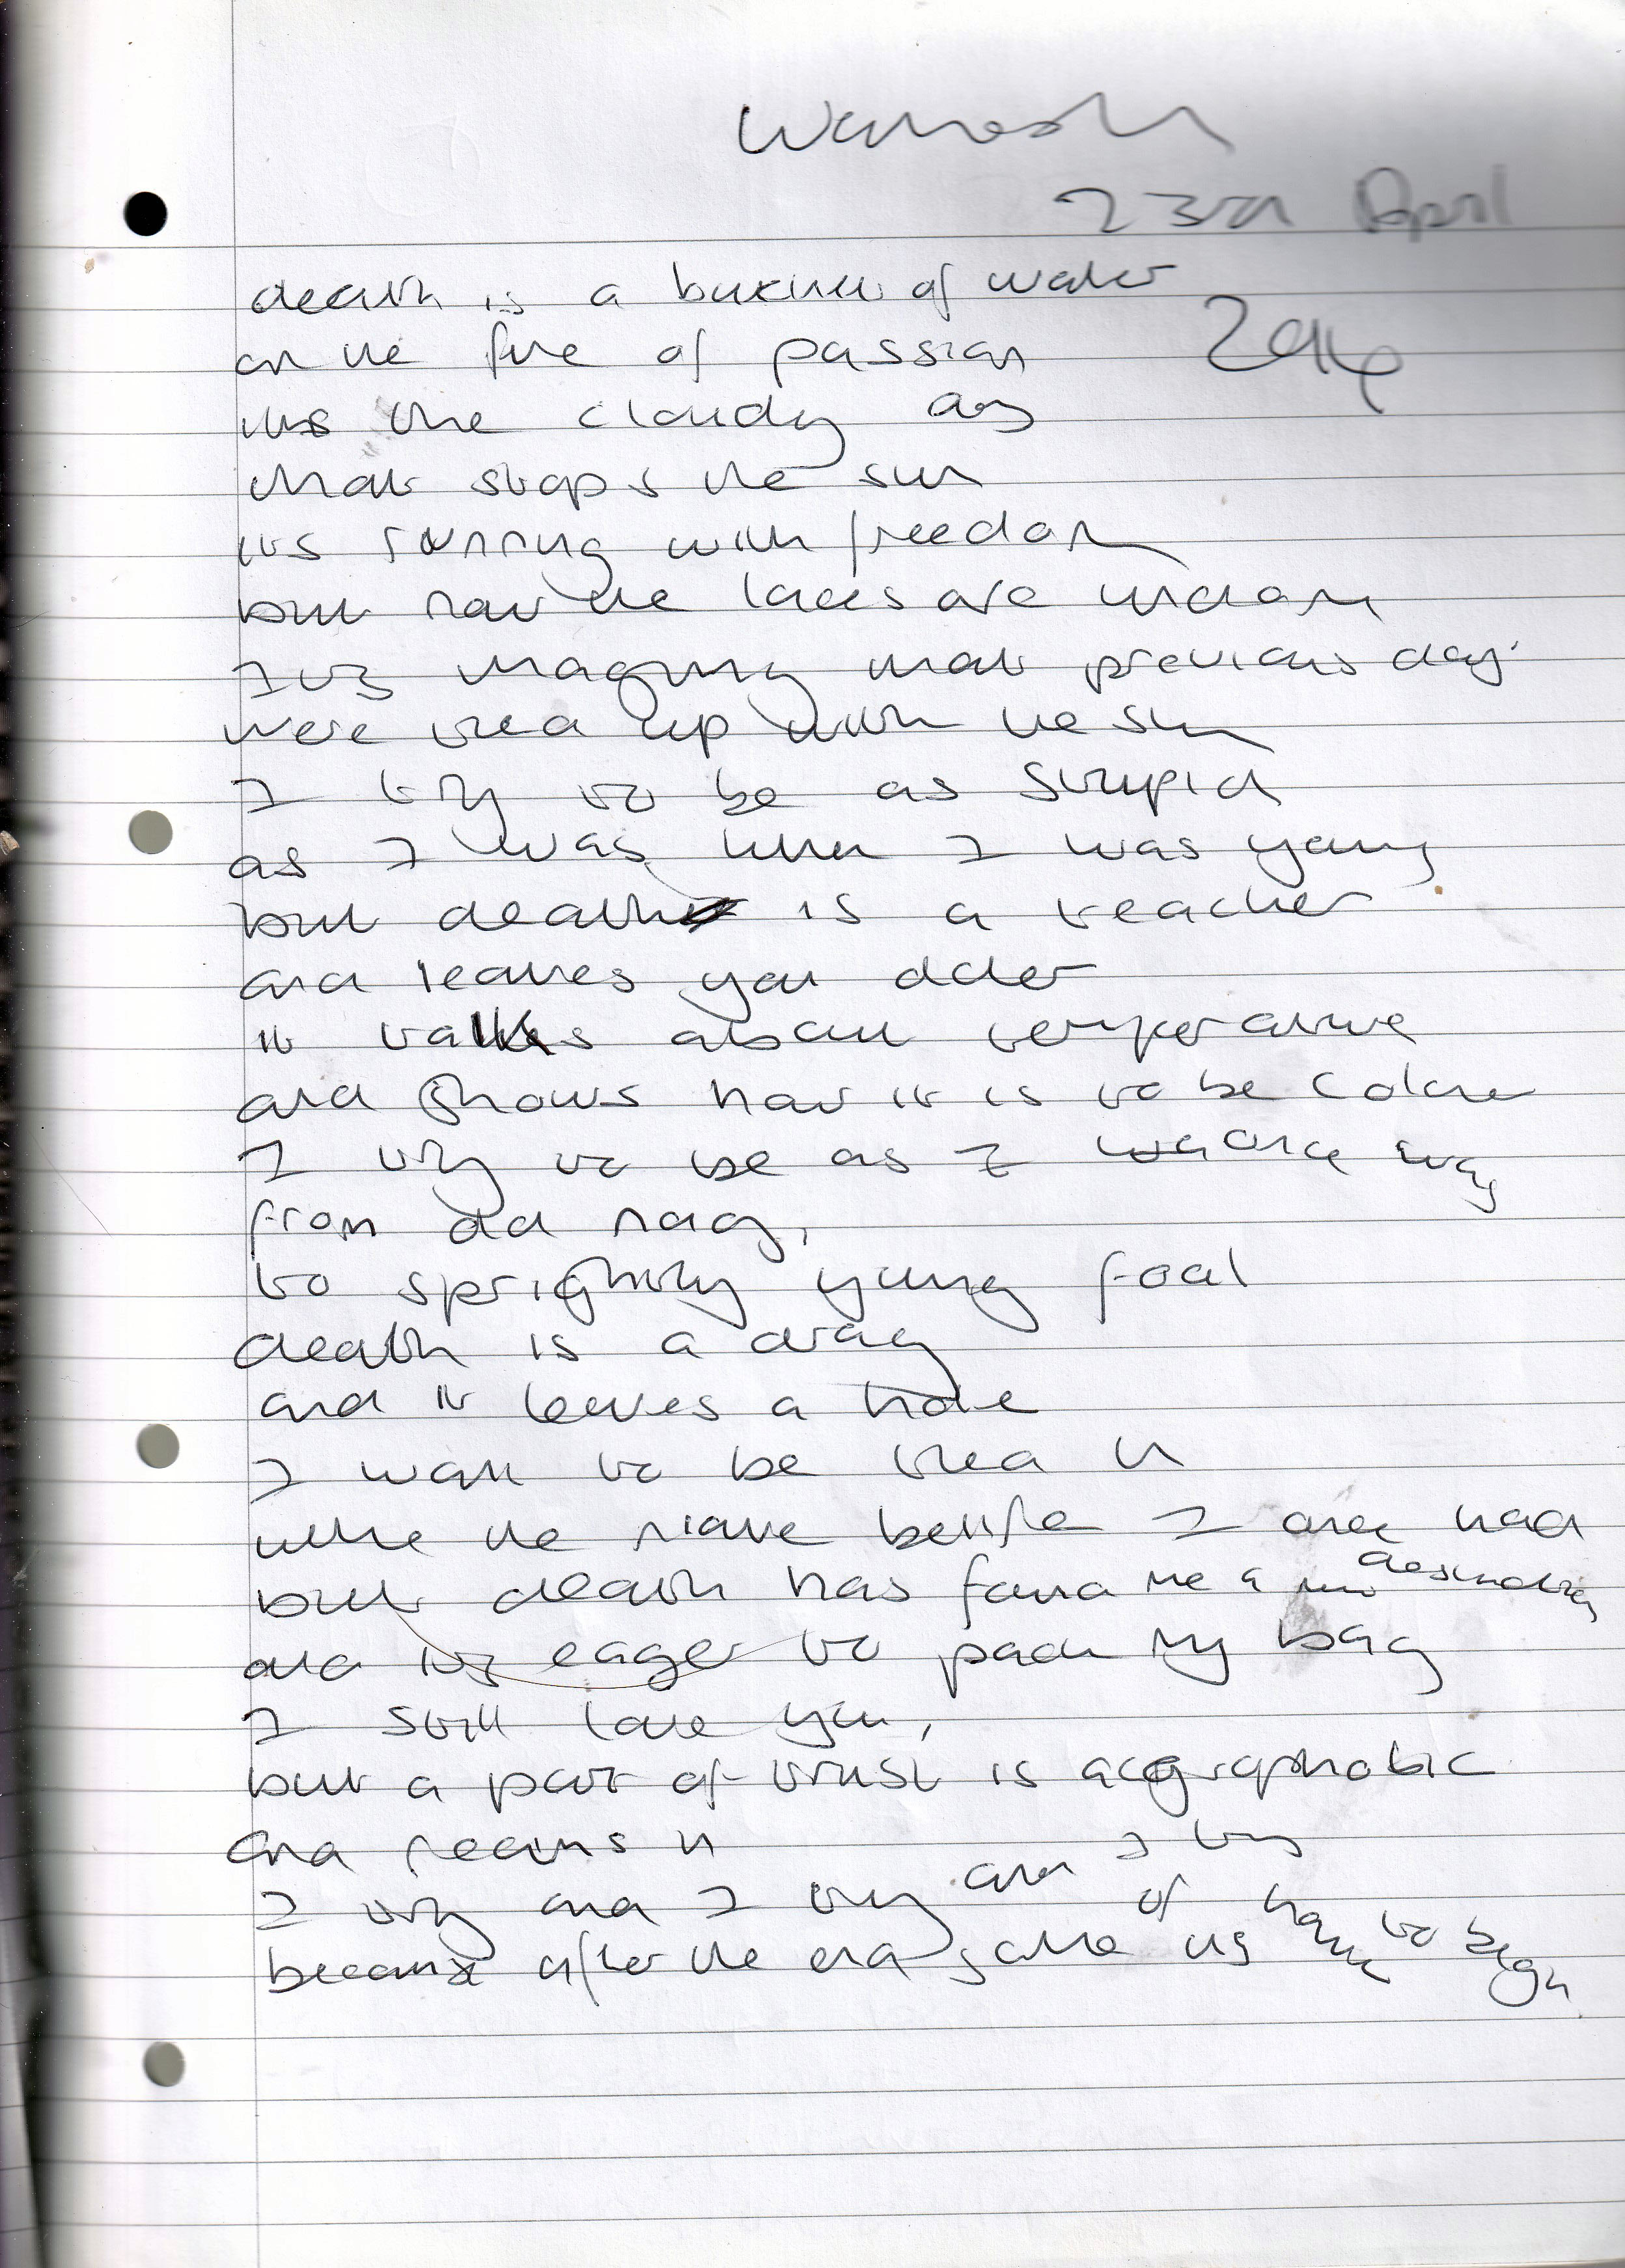 23rd April
2014
death is a bucket of water
on the fire of passion
its the cloudy day
that stops the sun
its running with freedom
but now the laces are undone
I try imagining that previous days
were tied up with the sun
I try to be as stupid
as I was when I was young
but death is a teacher
and leaves you older
it talks about temperature
and shows how it is to be colder
I try to be as I once was
from old nag,
to sprightly young foal
death is a drag
and it leaves a hole
I want to be tied in
with the naive belief I once had
but death has found me a new destination
and its eager to pack my bag
I still love you,
but a part of trust is agoraphobic
and remains in
I try and I try and I try
because after the end some of us have to begin